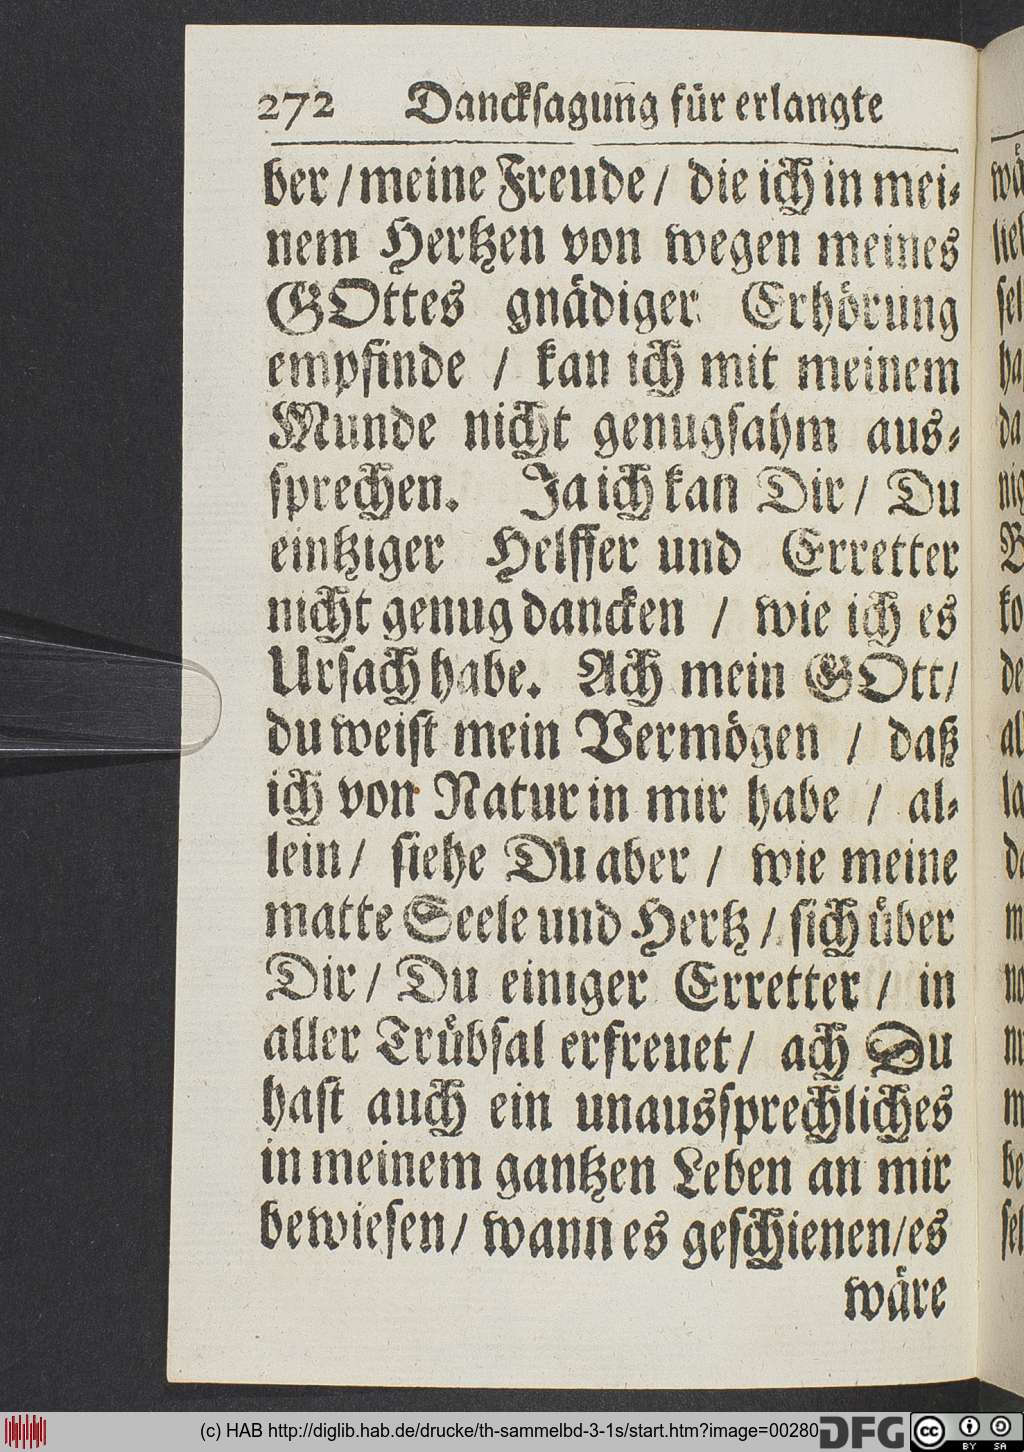 272 Danckſaguñg für erlangte
ber / meine Freude / die ich in mei⸗
nem Hertzen von wegen meines
GOttes gnädiger Erhörung
empfinde / kan ich mit meinem
Munde nicht genugſahm aus⸗
ſprechen. Ja ich kan Dir / Du
eintziger Helffer und Erretter
nicht genug dancken / wie ich es
Urſach habe. Ach mein GOtt /
du weiſt mein Vermögen / daß
ich von Natur in mir habe / al⸗
lein / ſiehe Du aber / wie meine
matte Seele und Hertz / ſich über
Dir / Du einiger Erretter / in
aller Trübſal erfreuet / ach Du
haſt auch ein unausſprechliches
in meinem gantzen Leben an mir
bewieſen / wann es geſchienen / es
wäre
(c) HAB http://diglib.hab.de/drucke/th-sammelbd-3-1s/start.htm?image=00280
DFG
cc BY SA